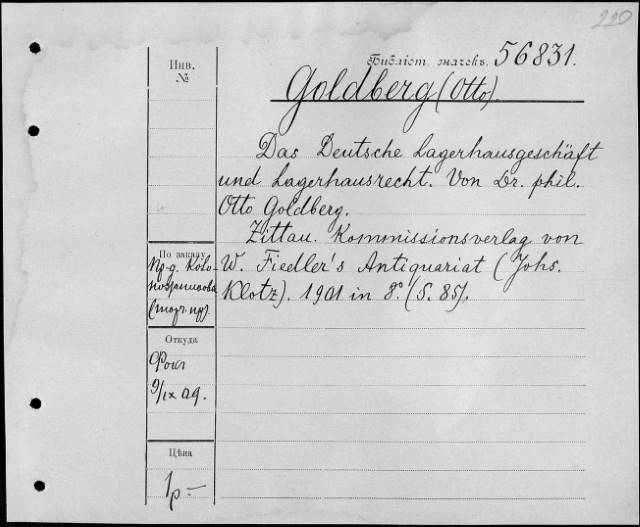 220
Инв.
№
Библіот. значекъ. 56831.
Goldberg (Otto).
Das Deutsche Lagerhausgeschäft
und Lagerhausrecht. Von Dr. phil.
Otto Goldberg.
Zittau. Kommissionsverlag von
W. Fiedler's Antiquariat (Johs.
Klotz). 1901 in 8° (S. 85).
По заказу
Пр-д.
Откуда
9/ix 09.
Цѣна
1р–